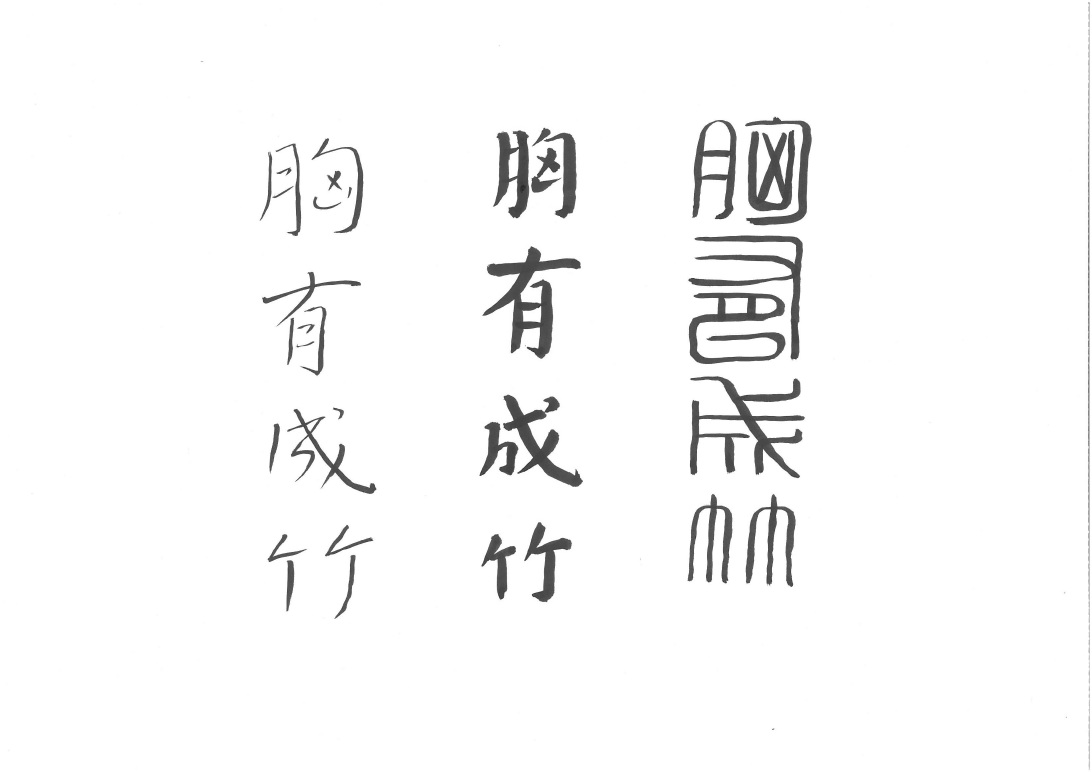 胸有成竹
胸有成竹
胸有成竹